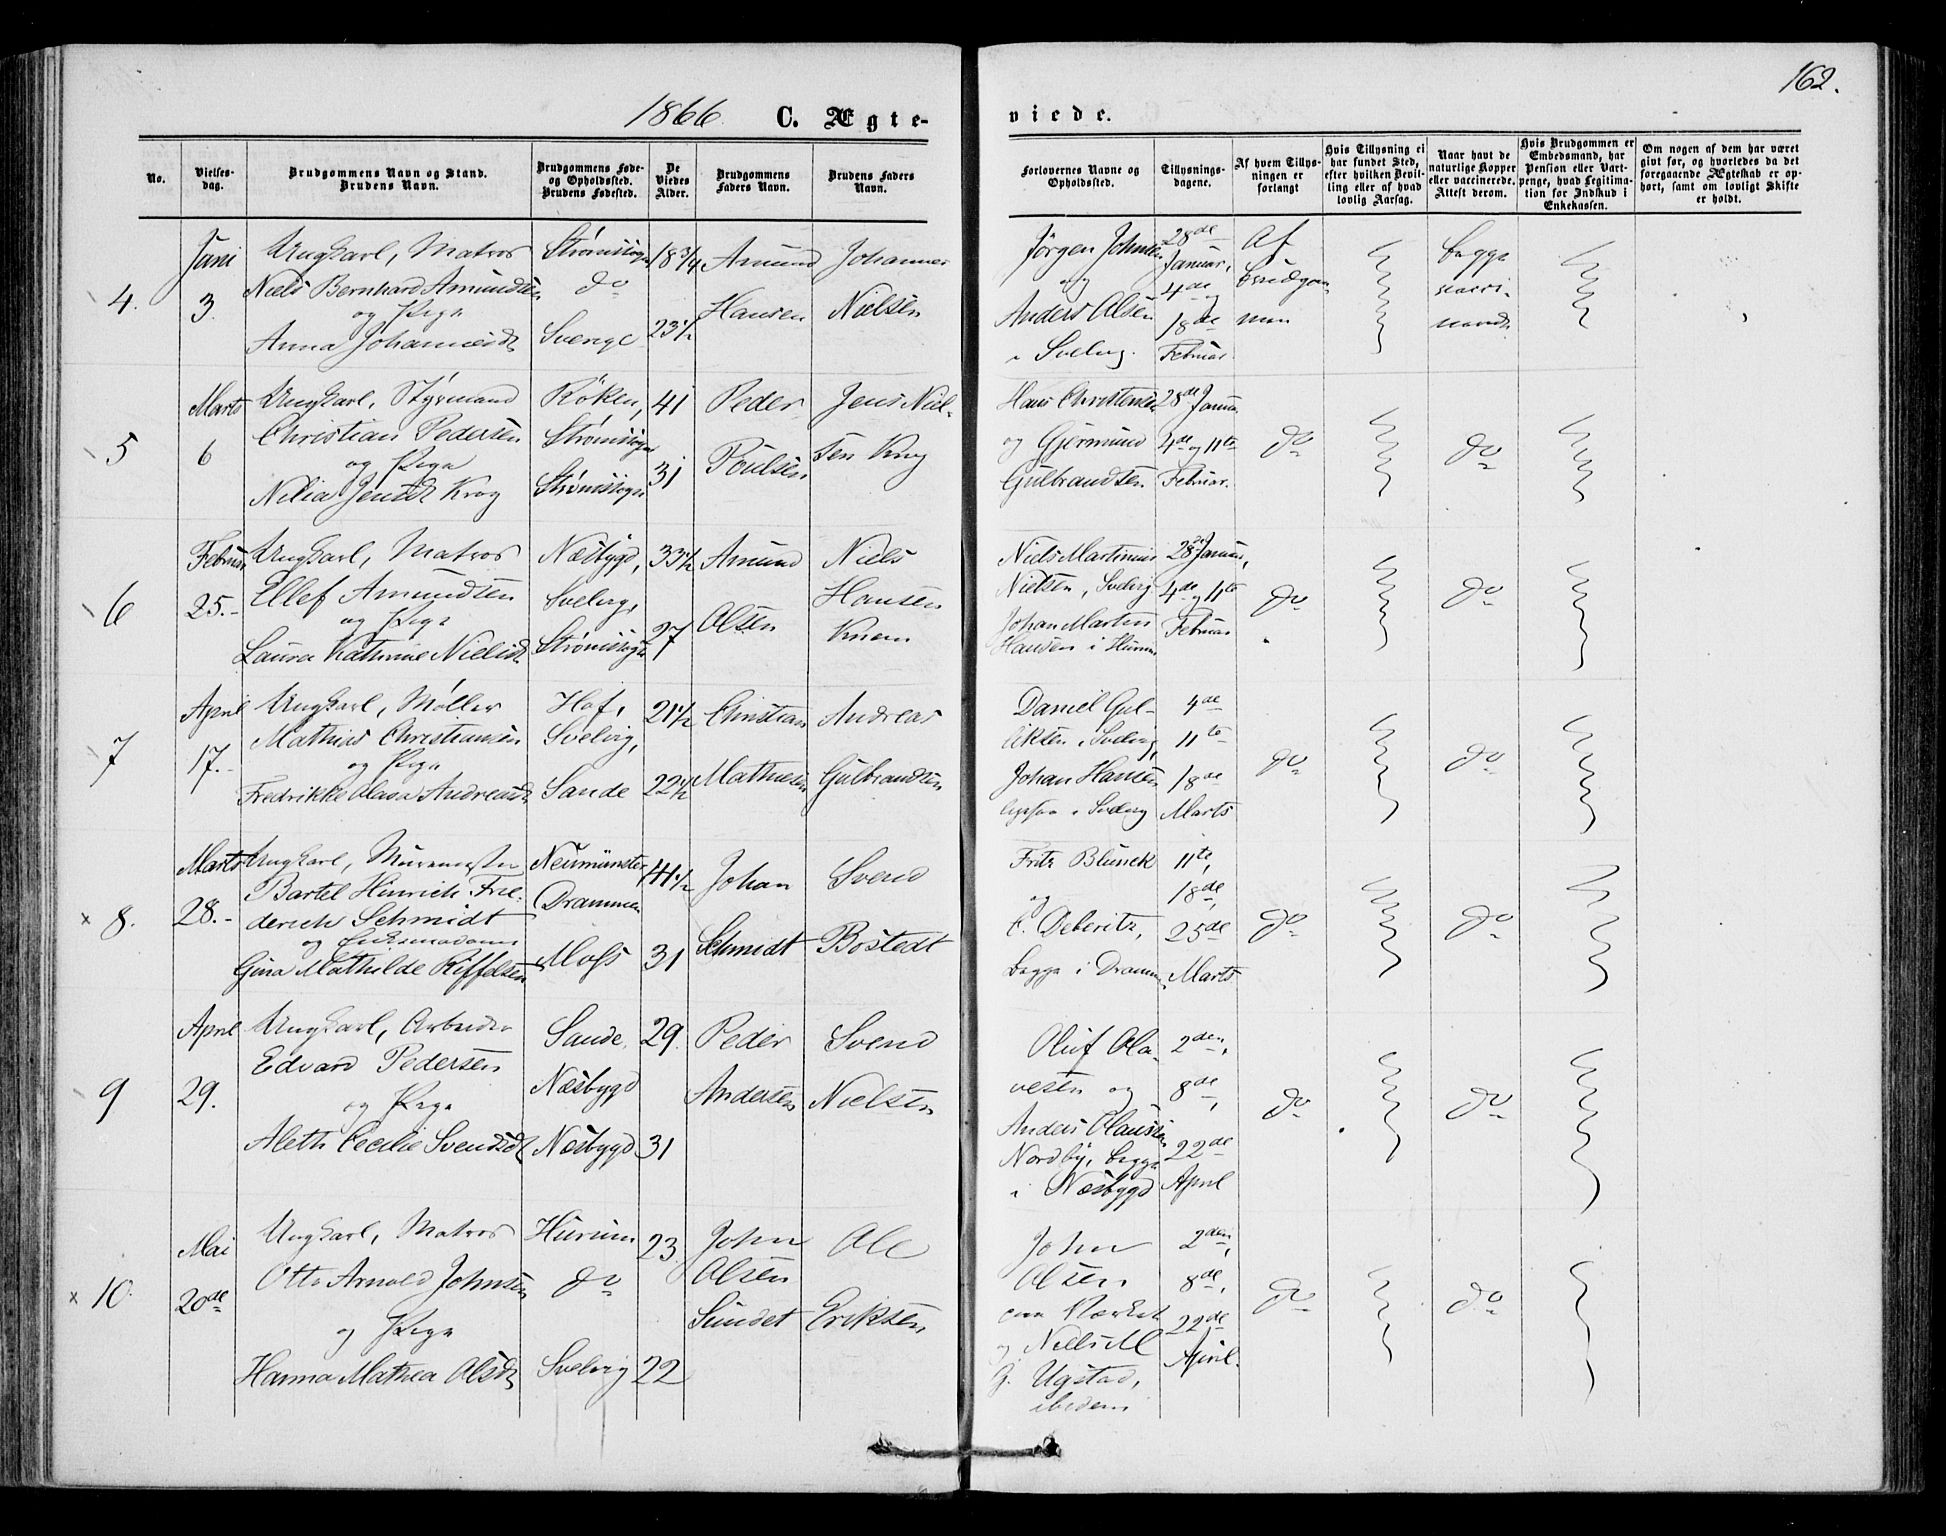 1866. C. Ægte-
viede.
162.
No.
Vielses-
dag.
Brudgommens Navn og Stand.
Brudens Navn.
Brudgommens Føde-
og Opholdssted.
Brudens Fødested.
De
Viedes
Alder.
Brudgommens
Faders Navn.
Brudens Faders
Navn.
Forlovernes Navne og
Opholdssted.
Tillysnings-
dagene.
Af hvem Tillys-
ningen er
forlangt
Hvis Tillysning ei
har fundet Sted,
efter hvilken Bevil-
ling eller af hvad
lovlig Aarsag.
Naar havt de
naturlige Kopper
eller vaccinerede.
Attest derom.
Hvis Brudgommen er
Embedsmand, har
Pension eller Vart-
penge, hvad Legitima-
tion for Indskud i
Enkekassen.
Om nogen af dem har været
givt før, og hvorledes da det
foregaaende Ægteskab er op-
hørt, samt om lovligt Skifte
er holdt.
4.
Juni
3.
Ungkarl, Matros
Niels Bernhard Amundsen
og Pige
Anna Johannesdt
Strømssogn
do
Sverige
18 3/4
23 1/2
Amund
Hansen
Johannes
Nielsen
Jørgen Johnsen
og
Anders Olsen
i Svelvig.
28de
Januar,
4de og
18de
Februar
Af
brudgom-
men
begge
vacci-
nered.
5
Marts
6
Ungkarl, Styrmand
Christian Pedersen
og Pige
Nilia Jensdt Krog
Røken,
Strømssogn
Strømssogn
41
31
Peder
Poulsen
Jens Niel-
sen Krog
Hans Christensen
og Gjermund
Gulbrandsen
28de Januar
4de og 11te
Februar.
do
do
6
Februar
25.-
Ungkarl, Matros
Ellef Amundsen
og Pige
Laura Kathrine Nielsdt
Næsbygd,
Svelvig,
Strømssogn
33 1/2
27
Amund
Olsen
Niels
Hansen
Knem
Niels Martinius
Nielsen, Svelvig
Johan Martin
Hansen i Hurum
28de Januar,
4de og 11te
Februar
do
do
7
April
17.-
Ungkarl, Møller
Mathias Christiansen
og Pige
Fredrikke Olava Andreasdt
Hof,
Svelvig,
Sande
21 1/2
22 1/2
Christian
Mathiesen
Andreas
Gulbrandsen
Daniel Gul-
liksen, Svelvig,
Johan Hansen
ligesaa i Svelvig
4de
11te
18de
Marts
do
do
8.
Marts
28.-
Ungkarl, Muremester
Bartel Hinrich Frie-
derich Schmidt
og Enkemadame
Gina Mathilde Riffelsen
Neumünster
Drammen
Moss
41 1/2
31
Johan
Schmidt
Svend
Bostedt
Fritz Blunck
og
C. Deberitz,
begge i Drammen
11te,
18de,
25de
Marts
do
do
9
April
29.
Ungkarl, Arbeider
Edvard Pedersen
og Pige
Aleth Cecilie Svendsdt
Sande
Næsbygd
Næsbygd
29.
31
Peder
Andersen
Svend
Nielsen
Oluf Ola-
vesen og
Anders Olaussen
Nordby, begge
i Næsbygd
2den,
8de,
22de
April
do
do
10.
Mai
20de
Ungkarl, Matros
Otto Arnold Johnsen
og Pige
Hanna Mathea Olsdt
Hurum
do
Svelvig
23
22
John
Olsen
Sundet
Ole
Eriksen
John
Olsen
paa Værket
og Niels M
G. Ugstad,
ibidem
2den,
8de,
22de
April.
do
do